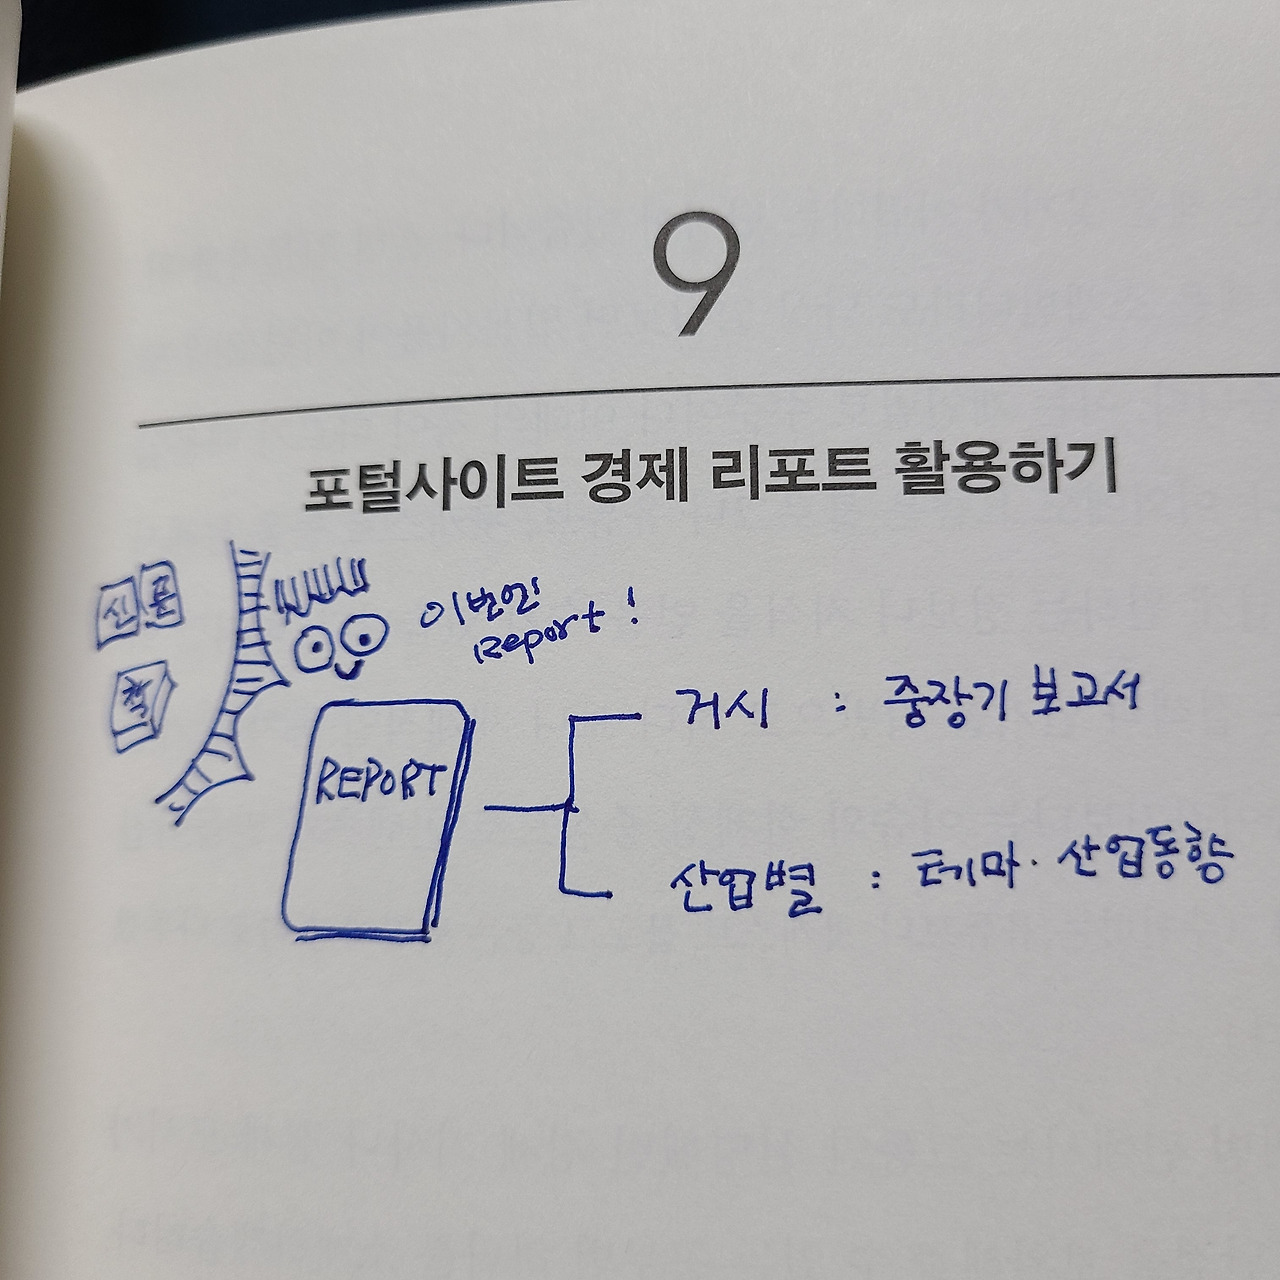 9
포털사이트 경제 리포트 활용하기
신문
책
이번엔
Report!
REPORT
거시 : 중장기 보고서
산업별 : 테마·산업동향